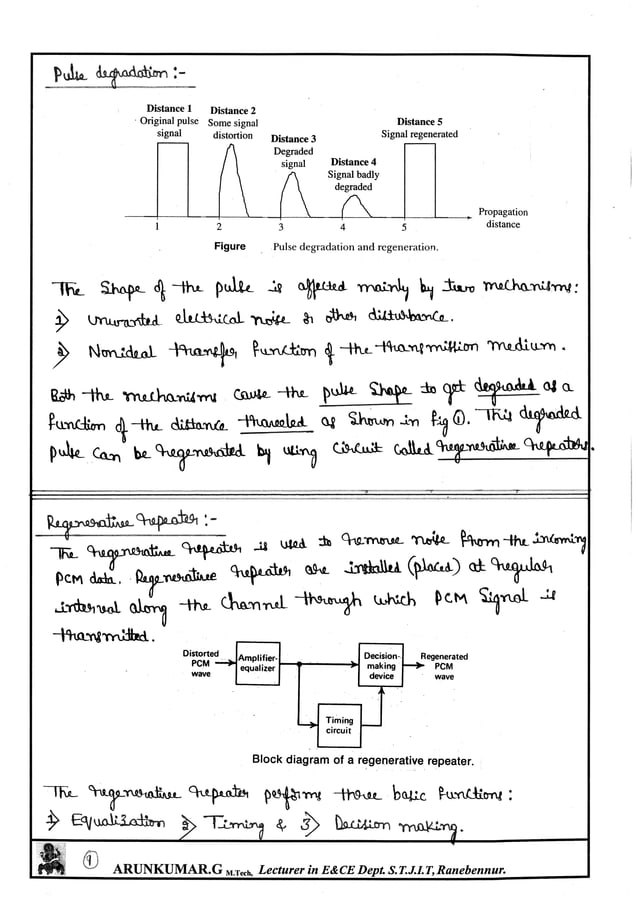 Pulse degradation :-
Distance 1
Original pulse
signal
Distance 2
Some signal
distortion
Distance 3
Degraded
signal
Distance 4
Signal badly
degraded
Distance 5
Signal regenerated
1 2 3 4 5
Propagation
distance
Figure Pulse degradation and regeneration.
The shape of the pulse is affected mainly by two mechanisms:
1) Unwanted electrical noise & other disturbance.
2) Nonideal transfer function of the transmission medium.
Both the mechanisms cause the pulse shape to get degraded as a
function of the distance traveled as shown in fig ①. This degraded
pulse can be regenerated by using circuit called regenerative repeaters.
Regenerative repeater :-
The regenerative repeater is used to remove noise from the incoming
PCM data. Regenerative repeater are installed (placed) at regular
interval along the channel through which PCM signal is
transmitted.
Distorted
PCM
wave
Amplifier-
equalizer
Decision-
making
device
Regenerated
PCM
wave
Timing
circuit
Block diagram of a regenerative repeater.
The regenerative repeater performs three basic functions :
1) Equalization 2) Timing & 3) Decision making.
9 ARUNKUMAR.G M.Tech, Lecturer in E&CE Dept. S.T.J.I.T, Ranebennur.